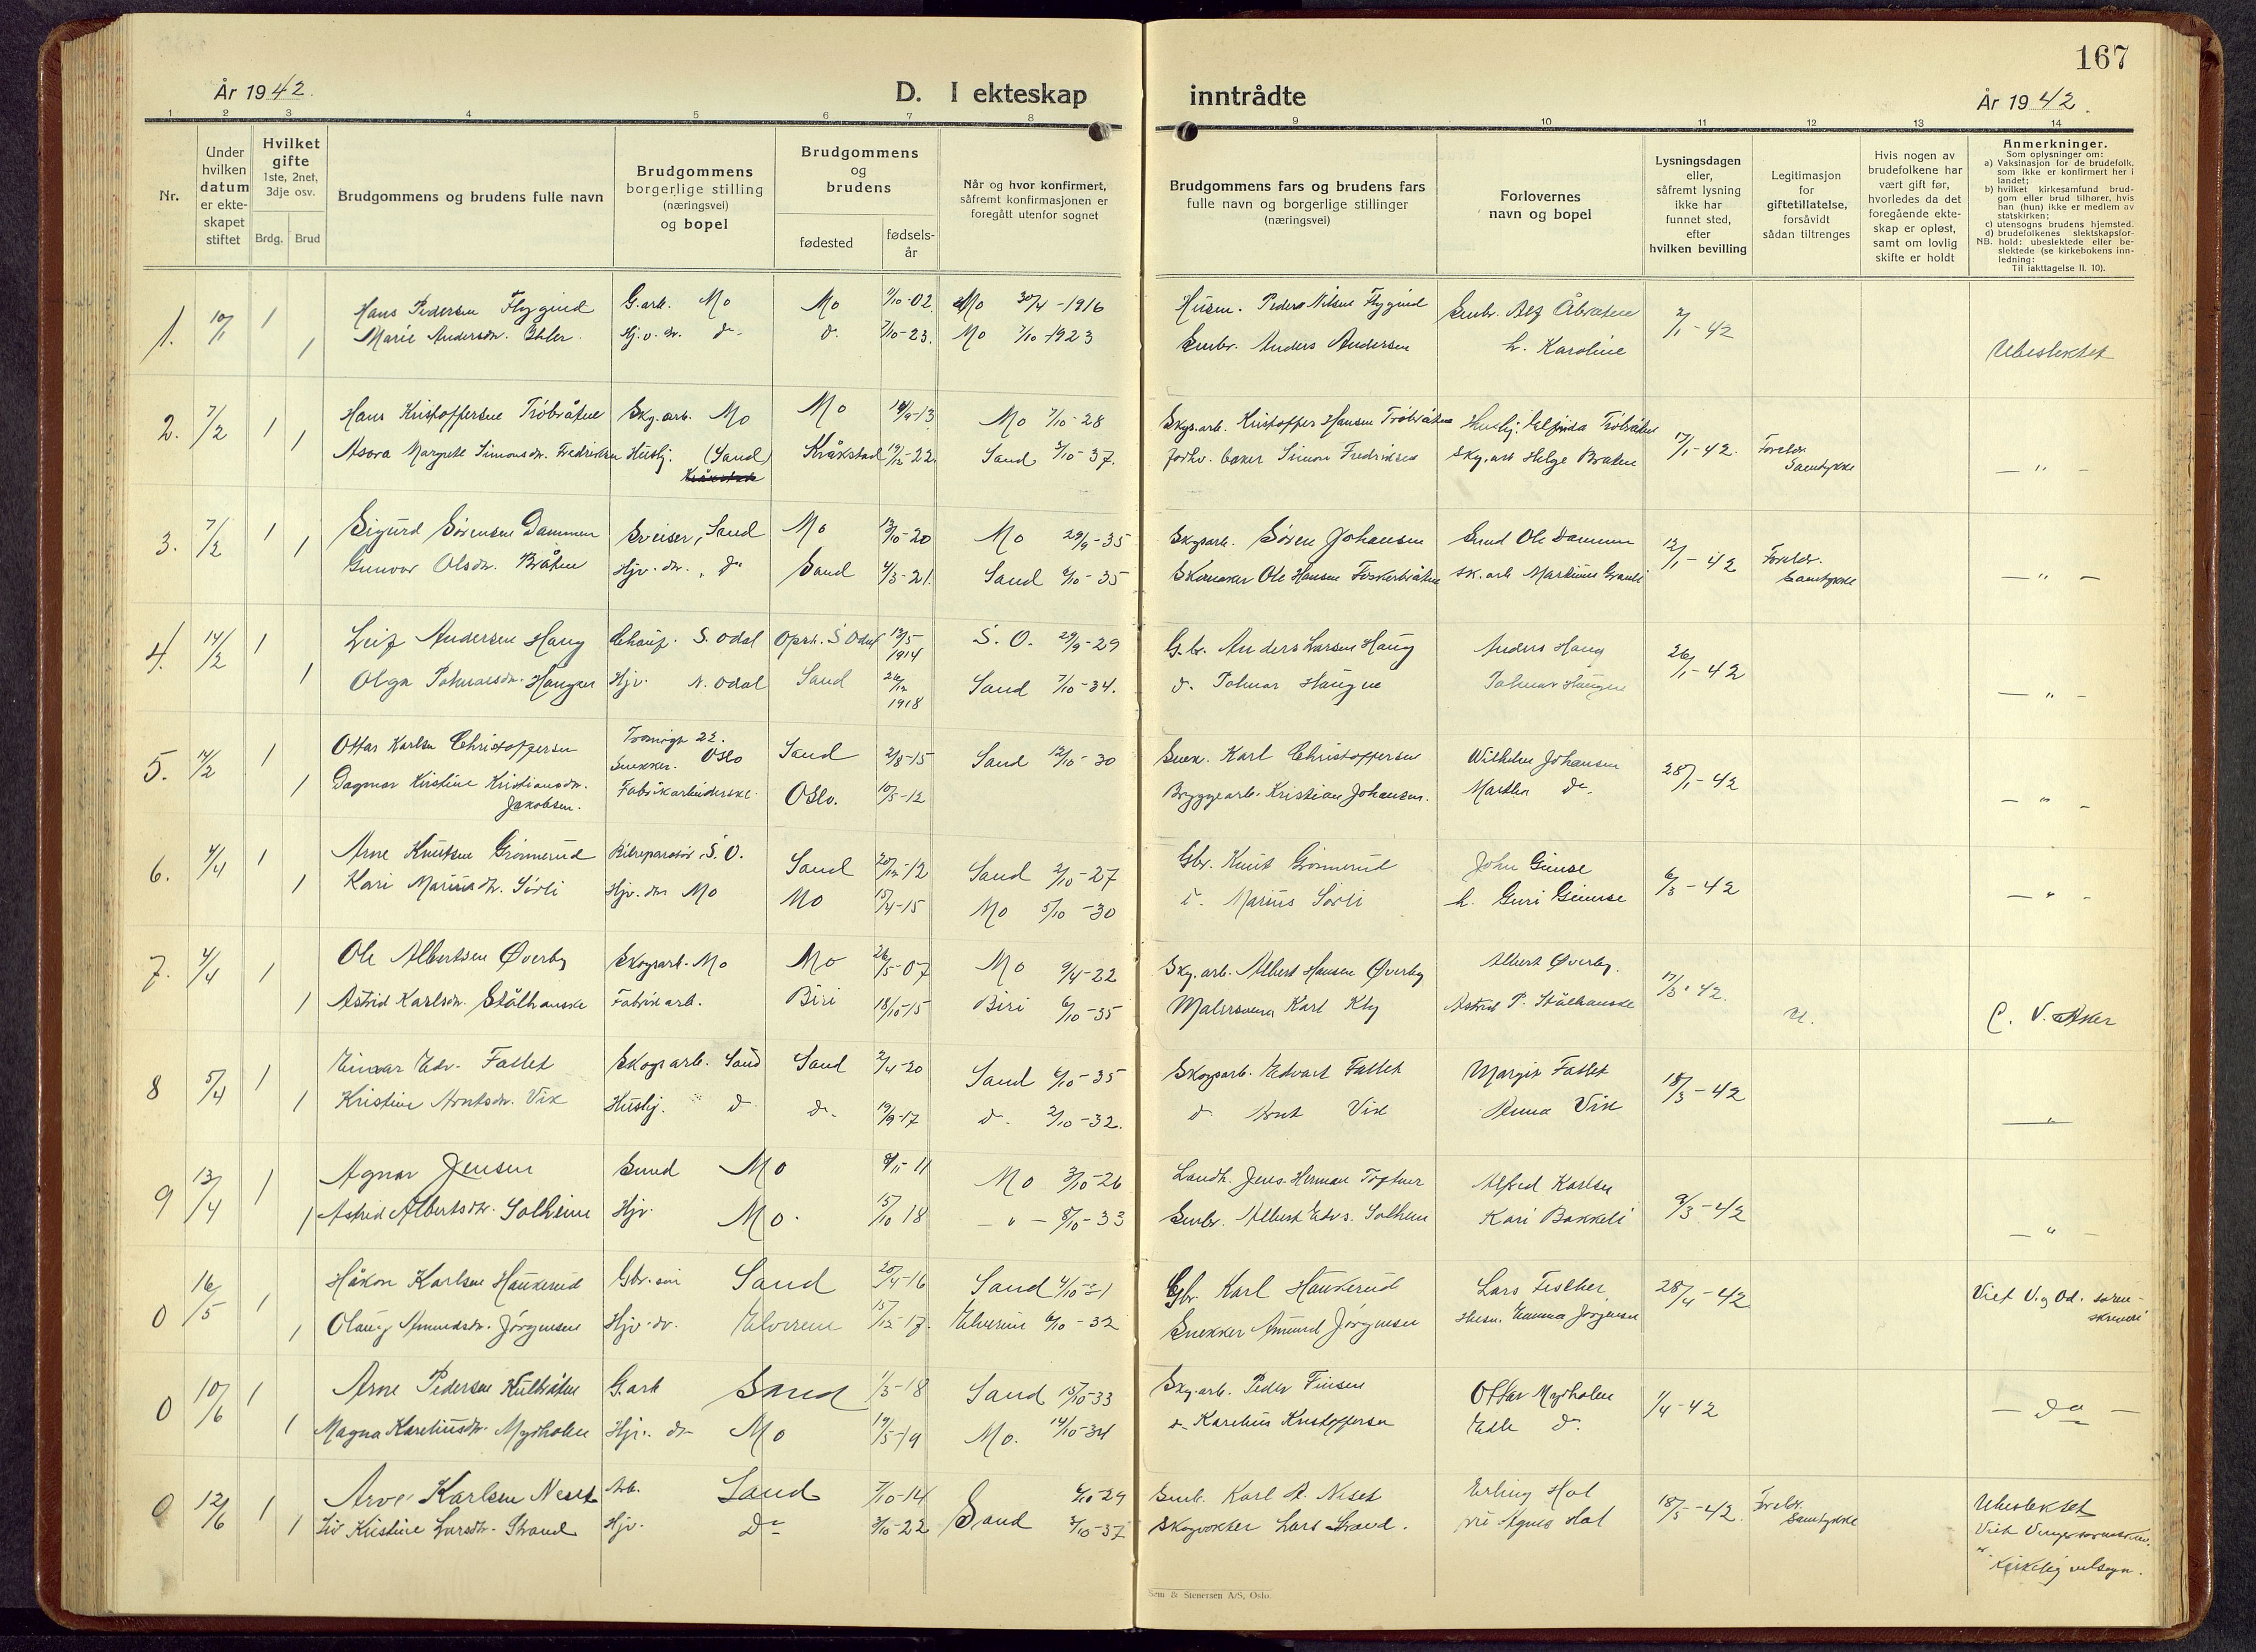 167
År 1942.
D. I ekteskap
inntrådte
År 1942.
1 2 3 4 5 6 7 8 9 10 11 12 13 14
Nr.
Under hvilken datum er ekteskapet stiftet
Hvilket gifte 1ste, 2net, 3dje osv.
Brdg. Brud
Brudgommens og brudens fulle navn
Brudgommens borgerlige stilling (næringsvei) og bopel
Brudgommens og brudens
fødested
fødselsår
Når og hvor konfirmert, såfremt konfirmasjonen er foregått utenfor sognet
Brudgommens fars og brudens fars fulle navn og borgerlige stillinger (næringsvei)
Forlovernes navn og bopel
Lysningsdagen eller, såfremt lysning ikke har funnet sted, efter hvilken bevilling
Legitimasjon for giftetillatelse, forsåvidt sådan tiltrenges
Hvis nogen av brudefolkene har vært gift før, hvorledes da det foregående ekteskap er opløst, samt om lovlig skifte er holdt
Anmerkninger.
Som oplysninger om:
a) Vaksinasjon for de brudefolk, som ikke er konfirmert her i landet;
b) hvilket kirkesamfund brudgom eller brud tilhører, hvis han (hun) ikke er medlem av statskirken;
c) utensogns brudens hjemsted.
d) brudefolkenes slektskapsforhold: ubeslektede eller beslektede (se kirkebokens innledning:
NB.
Til iakttagelse II. 10).
1. 10/1 1 Hans Pedersen Flygind G.arb. Mo Mo 11/10-02 Mo 30/4-1916 Husm. Peder Nilsen Flygind Smbr. Alf Åbråten 2/1-42
1 Marie Andersdr. Hj.v. dr. do d. 7/10-23. Mo 7/10-1923 Smbr. Anders Andersen h. Karoline Ubeslektet
2. 7/2 1 Hans Kristoffersen Tröbråten Skg.arb. Mo Mo 14/9-13 Mo 7/10-28 Skgs.arb. Kristoffer Hansen Tröbråten Huslj. Tröbråten 17/1-42. Foreldr. Samtykke
1 Asora Margrete Simonsdr. Fredriksen Huslj. (Sand) Kråkstad 19/12-22. Sand 3/10-37. Forhv. baker Simon Fredriksen Skg.arb Helge Bråten — " —
3. 7/2 1 Sigurd Sørensen Dammen Sveiser, Sand Mo 13/10-20 Mo 29/9-35 Skgsarb. Søren Johansen Smed Ole Dammen 12/1-42 Foreldr. Samtykke
1 Gunvor Olsdr. Bråten Hjv. dr. " do Sand 4/3-21. Sand 6/10-35 Skomaker Ole Hansen Sk.arb Martinius Granli — " —
4. 14/2 1 Leif Andersen Haug Chauf. S. Odal Opst. S Odal 13/5 1914 S. O. 29/9-29 G.br. Anders Larsen Haug Anders Haug 26/1-42
1 Olga Palmarsdr. Haugen Hjv. N. Odal Sand 26/12 1918 Sand 7/10-34. d. Palmar Haugen Palmar Haugen — " —
5. 14/2 1 Ottar Karlsen Christoffersen Snekker. Oslo Sand 2/8-15 Sand 12/10-30 Snek. Karl Christoffersen Wilhelm Johansen 28/1-42
1 Dagmar Kirstine Kristiansdr. Jakobsen. Fabrikarbeiderske. Oslo. 10/5-12 Bryggearb. Kristian Johansen. Martha do. — " —
6. 4/4 1 Arne Knutsen Grønnerud Bilreparatör, S. O. Sand 20/12-12 Sand 2/10-27 Gbr. Knut Grønnerud John Gimse 6/3-42
1 Kari Mariusdtr. Sörli Hjv. dr. Mo Mo 15/4-15 Mo 5/10-30 d. Marius Sörli h. Guri Gimse — " —
7. 4/4 1 Ole Albertsen Øverby Skogsarb. Mo Mo 26/5-07 Mo 9/4-22 Skg.arb. Albert Hansen Øverby Albert Øverby. 17/3-42.
1 Astrid Karlsdr. Stålhanske Fabrikarb. Biri 18/10-15 Biri 6/10-35 Malersvenn Karl Astrid P. Stålhanske C. V. Aker
8 5/4 1 Einar Edv. Fallet Skogsarb. Sand Sand 2/4-20 Sand 6/10-35 Skogsarb. Edvart Fallet Margit Fallet 18/3-42
1 Kristine Arntsdr. Vik Huslj. " d d. 19/9-17 d. 2/10-32. d Arnt Vik Anna Vik — " —
9 13/4 1 Agnar Jensen Smed Mo 8/11-11 Mo 3/10-26 Landh. Jens Herman Toftner Alfred Karlsen 9/3-42
1 Astrid Albertsdtr. Solheim Hjv. Mo. 15/10 18 — " — 8/10-33 Smbr. Albert Edvs. Solheim Kari Bakkeli — " —
0 16/5 1 Håkon Karlsen Haukerud Gbr. sön Sand 20/4-16 Sand 4/10-31 Gbr. Karl Haukerud Lars Fischer 28/4-42 Viet V. og Od. sorenskriveri
1 Olaug Amundsdr. Jörgensen Hjv. dr. Elverum 15/12-17. Elverum 6/10-32 Snekker Amund Jörgensen Husm. Emma Jörgensen
0 10/6 1 Arne Pedersen Kulbråten G.arb Sand 1/3-18 Sand 15/10-33 Skg.arb. Peder Finsen Ottar Myrholen 1/4-42
1 Magna Kareliusdr. Myrholen Hjv. dr Mo 19/5-19 Mo. 14/10-34 d Karelius Kristoffersen Edle d. — do —
0 12/6 1 Arve Karlsen Neset Arb. Sand 7/10-14 Sand 6/10-29 Smb. Karl A. Neset Erling Hol 18/5-42. Foreldr. Samtykke Ubeslektet
1 Liv Kristine Larsdtr. Strand Hjv. do 3/10-22 3/10-37 Skogvokter Lars Strand. Agnes Hol Viet
Kirkelig velsign.
Sem & Stenersen A/S, Oslo.